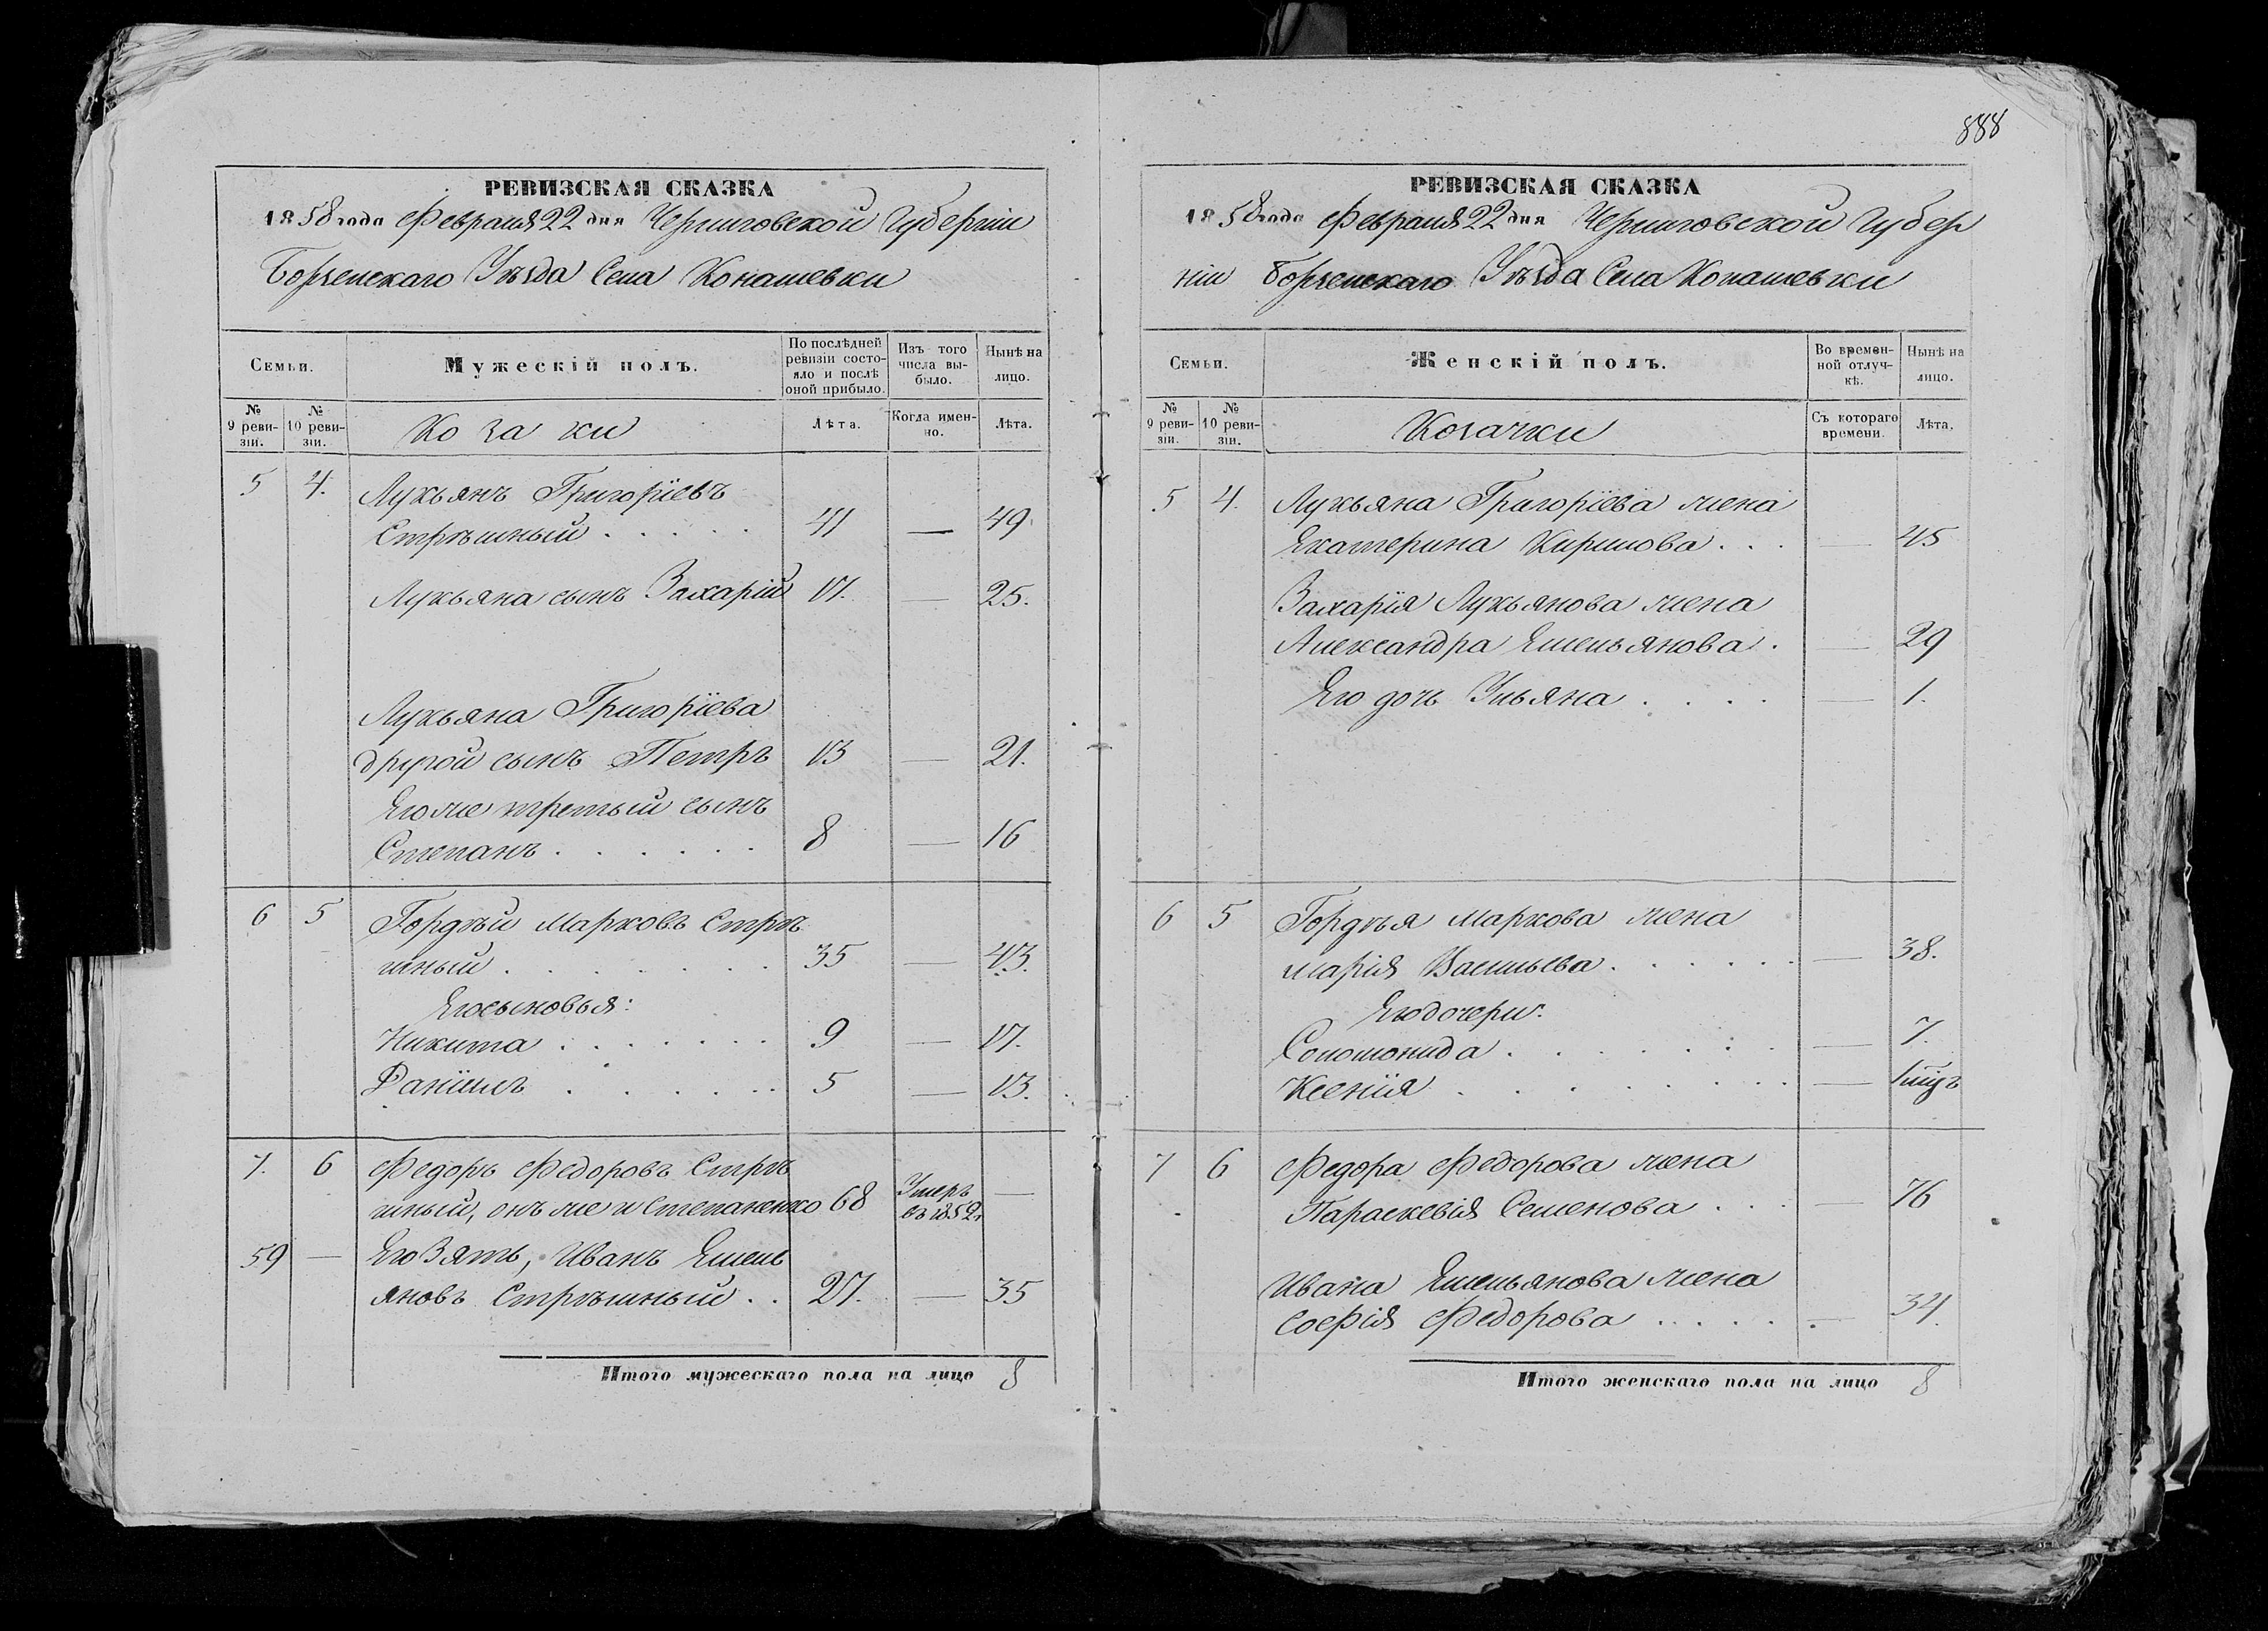 888
РЕВИЗСКАЯ СКАЗКА
1858 года Февраля 22 дня Черниговской Губерніи
Борзенскаго Уѣзда Села Конашевки
Семьи.
Мужескій полъ.
По послѣдней ревизіи состо-
яло и послѣ оной прибыло.
Изъ того числа вы-
было.
Нынѣ на лицо.
№ 9 реви-
зіи.
№ 10 реви-
зіи.
Козаки
Лѣта.
Когда имен-
но.
Лѣта.
5 4. Лукьянъ Григоріевъ
Стрѣшный . . . . . 41 — 49
Лукьяна сынъ Захарій 17. — 25.
Лукьяна Григоріева
другой сынъ Петръ 13 — 21.
Его же третьій сынъ
Степанъ . . . . . . 8 — 16
6 5 Гордѣй Марковъ Стрѣ
шный . . . . . . . 35 — 43.
Его сыновья:
Никита . . . . . . . 9 — 17.
Даніилъ . . . . . . 5 — 13.
7. 6 Федоръ Федоровъ Стрѣ
шный, онъ же и Степаненко 68 Умеръ въ 1852 г. —
59 — Его Зять, Иванъ Емель
яновъ Стрѣшный . . 27. — 35
Итого мужескаго пола на лицо 8
РЕВИЗСКАЯ СКАЗКА
1858 года Февраля 22 дня Черниговской Губер
ніи Борзенскаго Уѣзда Села Конашевки
Семьи.
Женскій полъ.
Во времен-
ной отлуч-
кѣ.
Нынѣ на лицо.
№ 9 реви-
зіи.
№ 10 реви-
зіи.
Козачки
Съ котораго времени.
Лѣта.
5 4. Лукьяна Григоріева жена
Екатерина Кирилова . . . — 45
Захарія Лукьянова жена
Александра Емельянова . — 29
Его дочь Ульяна . . . . — 1.
6 5 Гордѣя Маркова жена
Марія Васильева . . . . . . — 38.
Его дочери:
Соломонида . . . . . . . — 7.
Ксенія . . . . . . . . — 1 мѣц.
7 6 Федора Федорова жена
Параскевія Семенова . . . — 76
Ивана Емельянова жена
Софія Федорова . . . . . — 34.
Итого женскаго пола на лицо 8